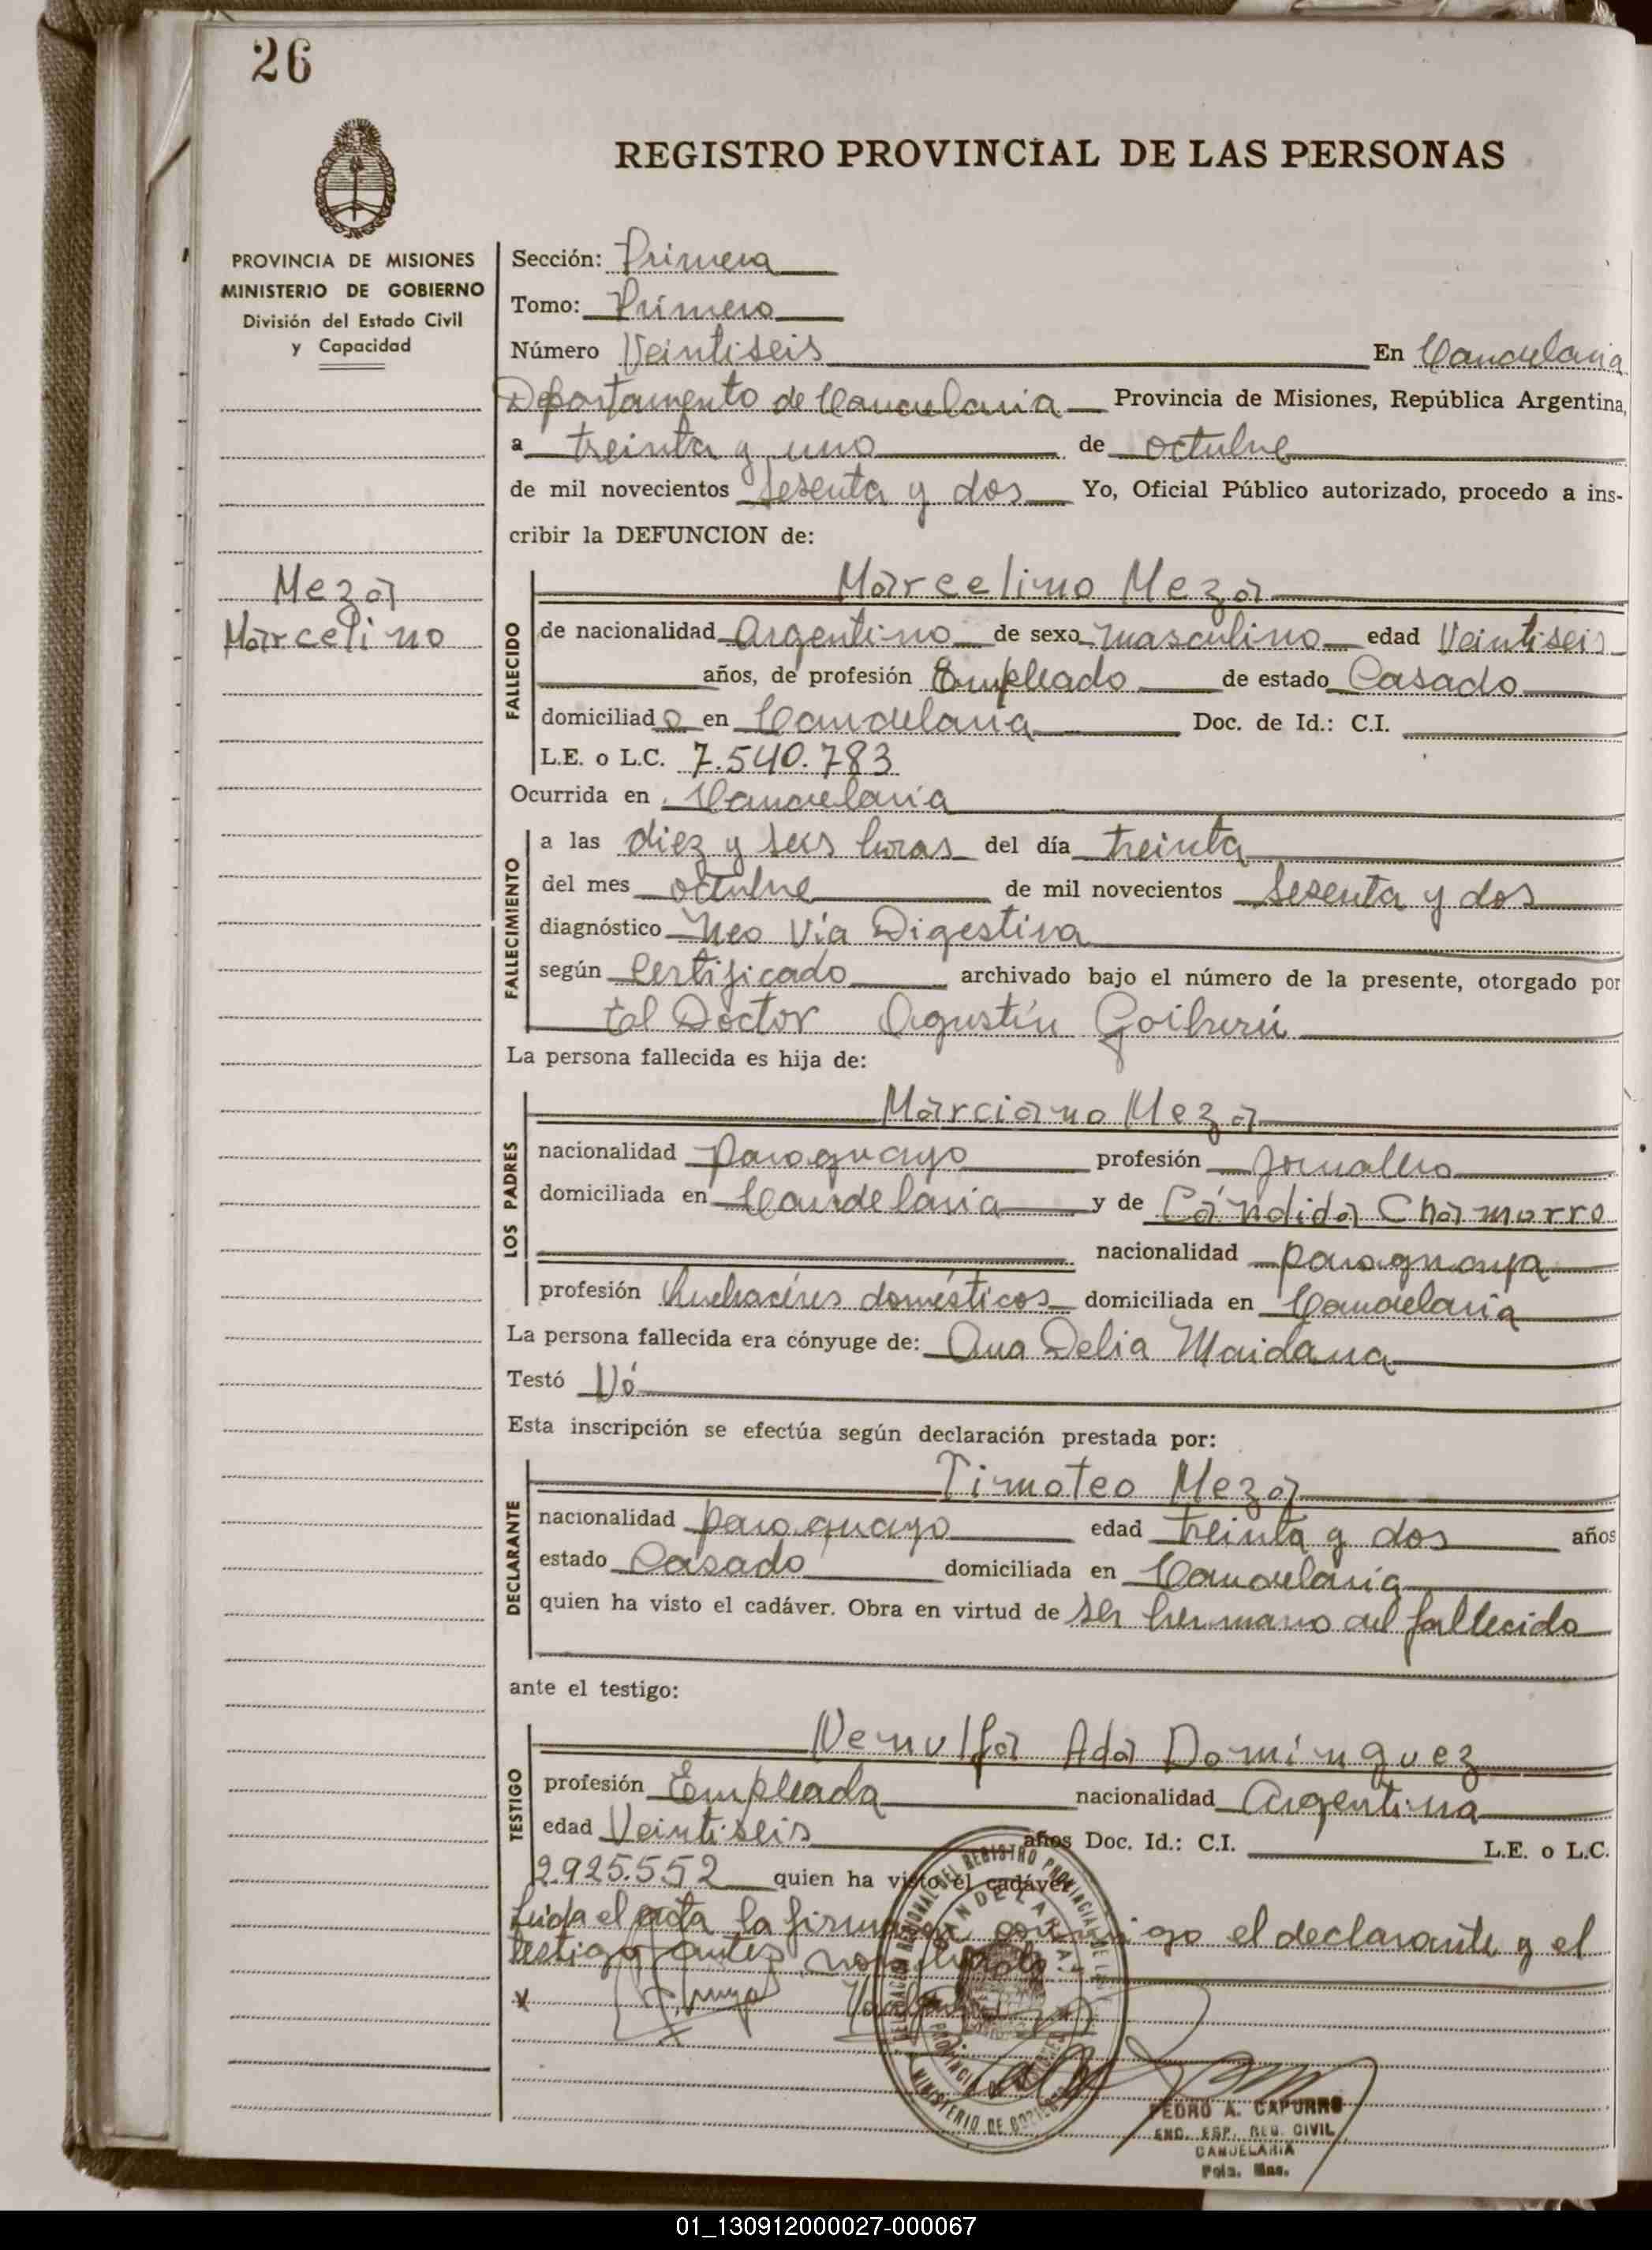 26
REGISTRO PROVINCIAL DE LAS PERSONAS
PROVINCIA DE MISIONES
MINISTERIO DE GOBIERNO
División del Estado Civil
y Capacidad
Meza
Marcelino
Sección: Primera
Tomo: Primero
Número Veintiseis En Candelaria
Departamento de Candelaria Provincia de Misiones, República Argentina,
a treinta y uno de octubre
de mil novecientos sesenta y dos Yo, Oficial Público autorizado, procedo a ins-
cribir la DEFUNCION de:
FALLECIDO
Marcelino Meza
de nacionalidad Argentino de sexo masculino edad Veintiseis
años, de profesión Empleado de estado Casado
domiciliado en Candelaria Doc. de Id.: C.I.
L.E. o L.C. 7.540.783
Ocurrida en Candelaria
FALLECIMIENTO
a las diez y seis horas del día treinta
del mes octubre de mil novecientos sesenta y dos
diagnóstico Neo Vía Digestiva
según Certificado archivado bajo el número de la presente, otorgado por
el Doctor Agustín Goiburú
La persona fallecida es hija de:
LOS PADRES
Marciano Meza
nacionalidad paraguayo profesión Jornalero
domiciliada en Candelaria y de Cándida Chamorro
nacionalidad paraguaya
profesión Quehaceres domésticos domiciliada en Candelaria
La persona fallecida era cónyuge de: Ana Delia Maidana
Testó Nó
Esta inscripción se efectúa según declaración prestada por:
DECLARANTE
Timoteo Meza
nacionalidad paraguayo edad treinta y dos años
estado Casado domiciliada en Candelaria
quien ha visto el cadáver. Obra en virtud de ser hermano del fallecido
ante el testigo:
TESTIGO
Venulfa Ada Domínguez
profesión Empleada nacionalidad Argentina
edad Veintiseis años Doc. Id.: C.I. L.E. o L.C.
2.925.552 quien ha visto el cadáver
Leída el acta la firman conmigo el declarante y el
testigo antes nombrado
x
DELEGACION REGIONAL DEL REGISTRO PROVINCIAL DE LAS
CANDELARIA
PROVINCIA DE
MINISTERIO DE GOBIERNO
PEDRO A. CAPURRO
ENC. ESP. REG. CIVIL
CANDELARIA
Pcia. Mns.
01_130912000027-000067